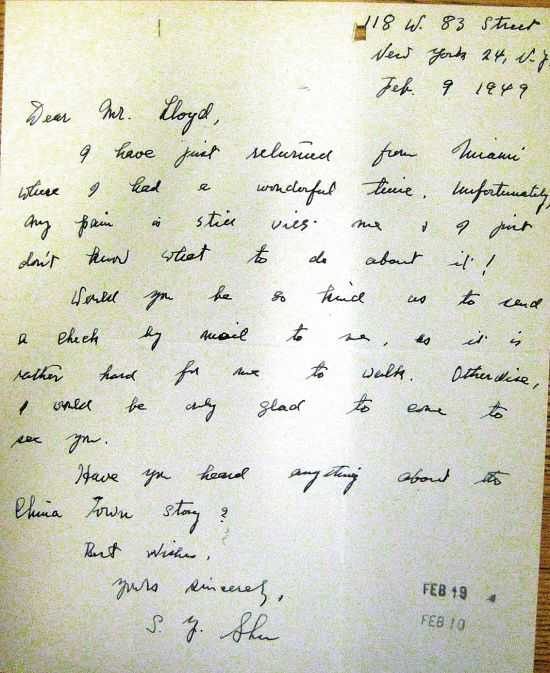 118 W. 83 Street
New York 24, N.Y.
Feb. 9 1949
Dear Mr. Lloyd,
I have just returned from Miami
where I had a wonderful time. Unfortunately,
my pain is still me & I just
don't know what to do about it!
Would you be so kind as to send
a check by mail to me, as it is
rather hard for me to walk. Otherwise,
I would be only glad to come to
see you.
Have you heard anything about the
China Town story?
Best wishes,
Yours sincerely,
S. Y.
FEB 19
FEB 10